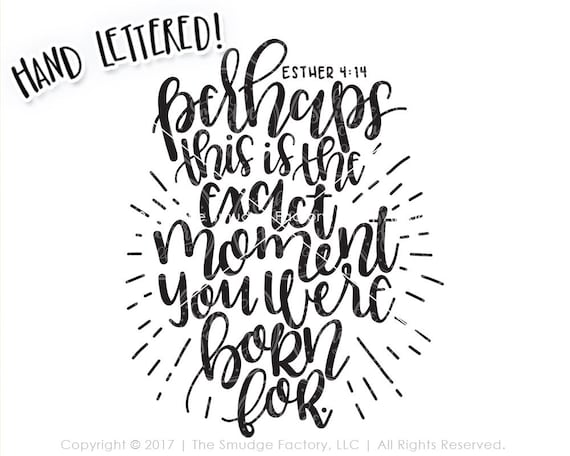 HAND LETTERED!
ESTHER 4:14
perhaps
this is the
exact
The Smudge Factory
moment
you were
born
for.
Copyright © 2017 | The Smudge Factory, LLC | All Rights Reserved.